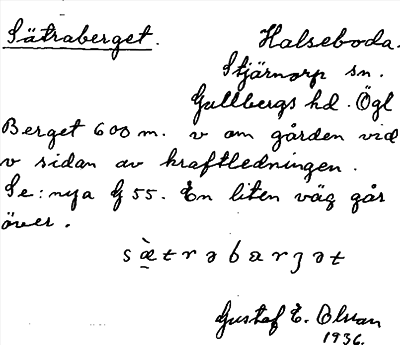 Sätraberget.
Halseboda.
Stjärnorp sn.
Gullbergs hd. Ögl
Berget 600 m. v om gården vid
v sidan av kraftledningen.
Se: nya G 55. En liten väg går
över.
sæ̀trəbarʒət
Gustaf E. Olsson
1936.